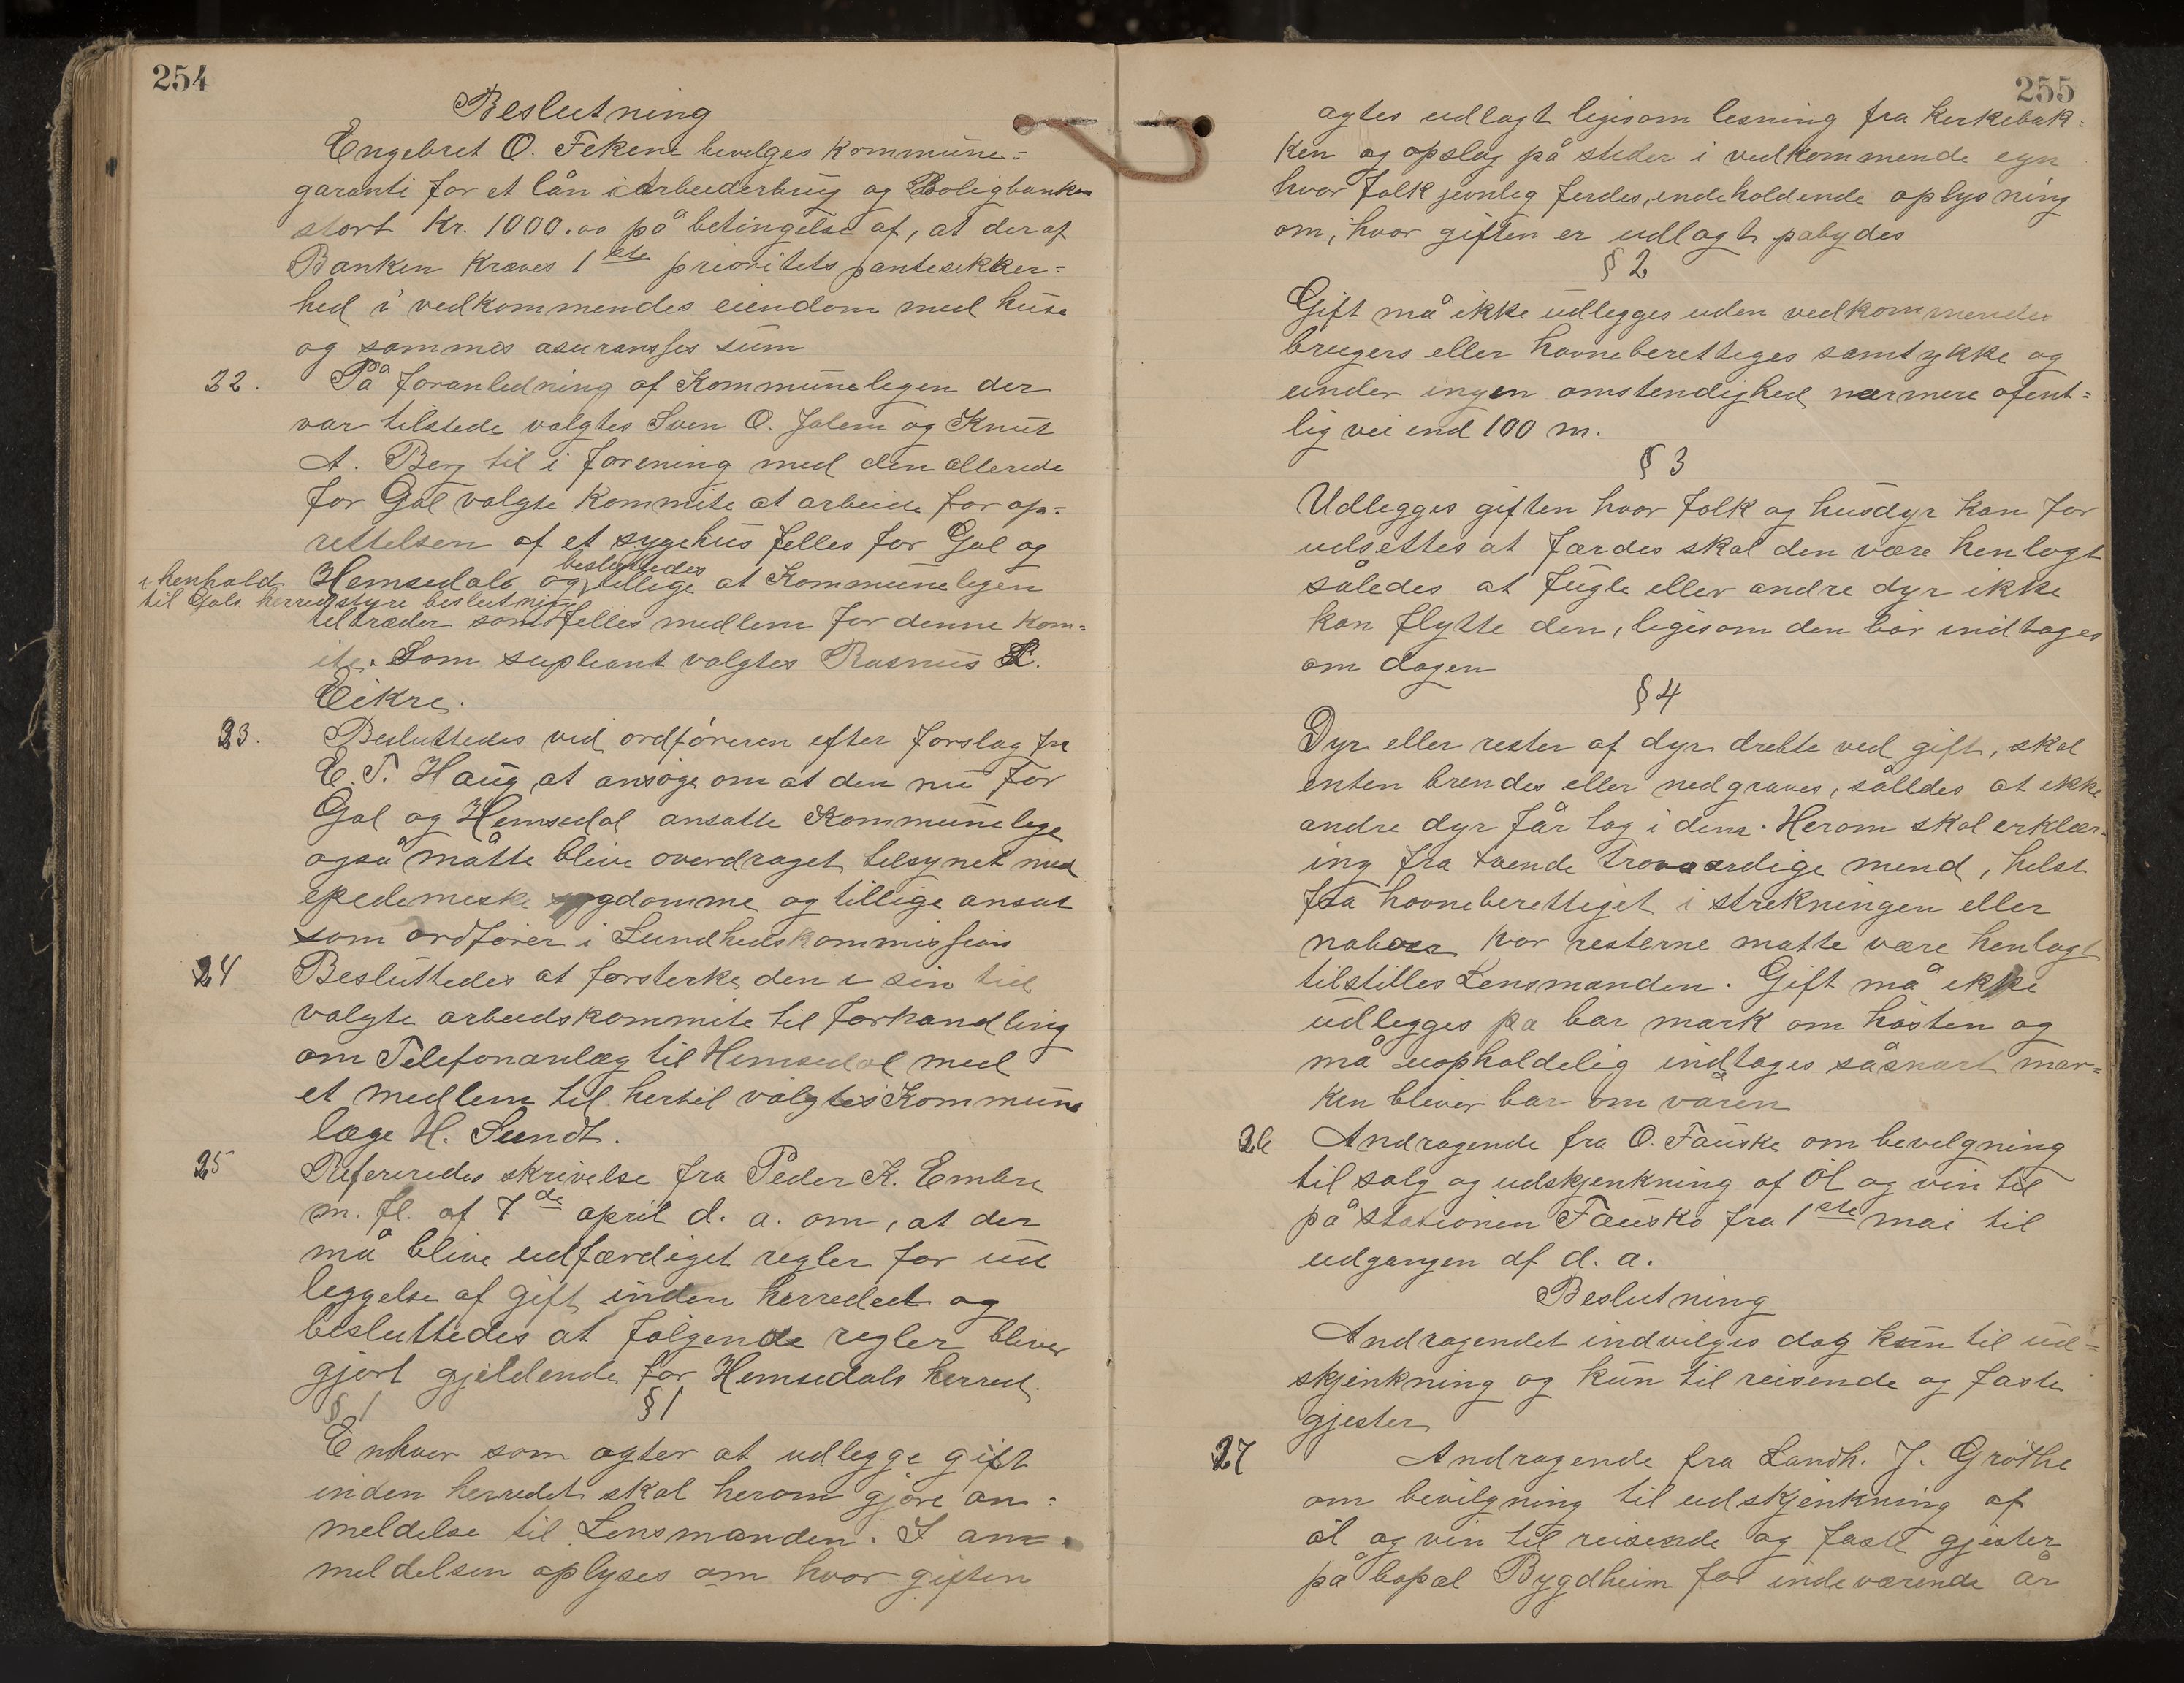 254
Beslutning
Engebret O. Fekene bevilges kommune=
garanti for et lån i Arbeiderbrug og Boligbanken
stort Kr. 1000.00 på betingelse af, at der af
Banken kræves 1ste prioritets pantesikker=
hed i vedkommendes eiendom med huse
og sammes asuransses sum
22. På foranledning af Kommunelegen der
var tilstede valgtes Sven O. Jalem og Knut
A. Berg til i forening med den allerede
for Gol valgte kommite at arbeide for op=
rettelsen af et sygehus felles for Gol og
i henhold til Gols herredstyre beslutning
Hemsedals og besluttedes tillige at Kommunelegen
tiltræder som felles medlem for denne kom=
ite. Som supleant valgtes Rasmus L.
Eikre.
23. Besluttedes ved ordføreren efter forslag fra
E. T. Haug at ansøge om at den nu for
Gol og Hemsedal ansatte Kommunelege
også måtte blive overdraget tilsynet med
epedemiske sygdomme og tillige ansat
som ordfører i Sundhedskommission
24 Besluttedes at forsterke den i sin tid
valgte arbeidskommite til forhandling
om Telefonanlæg til Hemsedal med
et medlem til hertil valgtes Kommune
læge H. Sundt.
25 Refereredes skrivelse fra Peder K. Embre
m. fl. af 7de april d. a. om, at der
må blive udfærdiget regler for ud
leggelse af gift inden herredet og
besluttedes at følgende regler bliver
gjort gjeldende for Hemsedals herred.
§ 1 § 1
Enhver som agter at udlegge gift
inden herredet skal herom gjøre an=
meldelse til Lensmanden. I an=
meldelsen oplyses om hvor giften
255
agtes udlagt ligesom lesning fra kirkebak=
ken og opslag på steder i vedkommende egn
hvor folk jevnlig ferdes, indeholdende oplysning
om, hvor giften er udlagt pabydes
§ 2
Gift må ikke udlegges uden vedkommende
brugers eller havneberettiges samtykke og
under ingen omstendighed nærmere ofent=
lig vei end 100 m.
§ 3
Udlegges giften hvor folk og husdyr kan for
udsettes at færdes skal den være henlagt
således at fugle eller andre dyr ikke
kan flytte den, ligesom den bør indtages
om dagen
§ 4
Dyr eller rester af dyr drebte ved gift, skal
enten brendes eller nedgraves, sålldes at ikke
andre dyr får tag i dem. Herom skal erklær=
ing fra tvende troværdige mend, helst
fra havneberettiget i strekningen eller
naboer hvor resterne matte være henlagt
tilstilles Lensmanden. Gift må ikke
udlegges pa bar mark om høsten og
må uopholdelig indtages såsnart mar=
ken bliver bar om våren
26 Andragende fra O. Fauske om bevelgning
til salg og udskjenkning af Øl og vin til
på stationen Fauske fra 1ste mai til
udgangen af d. a.
Beslutning
Andragendet indvilges dog kun til ud=
skjenkning og kun til reisende og faste
gjester
27 Andragende fra Landh. J. Grøthe
om bevilgning til udskjenkning af
øl og vin til reisende og faste gjester
på bopæl Bygdheim for indeværende år